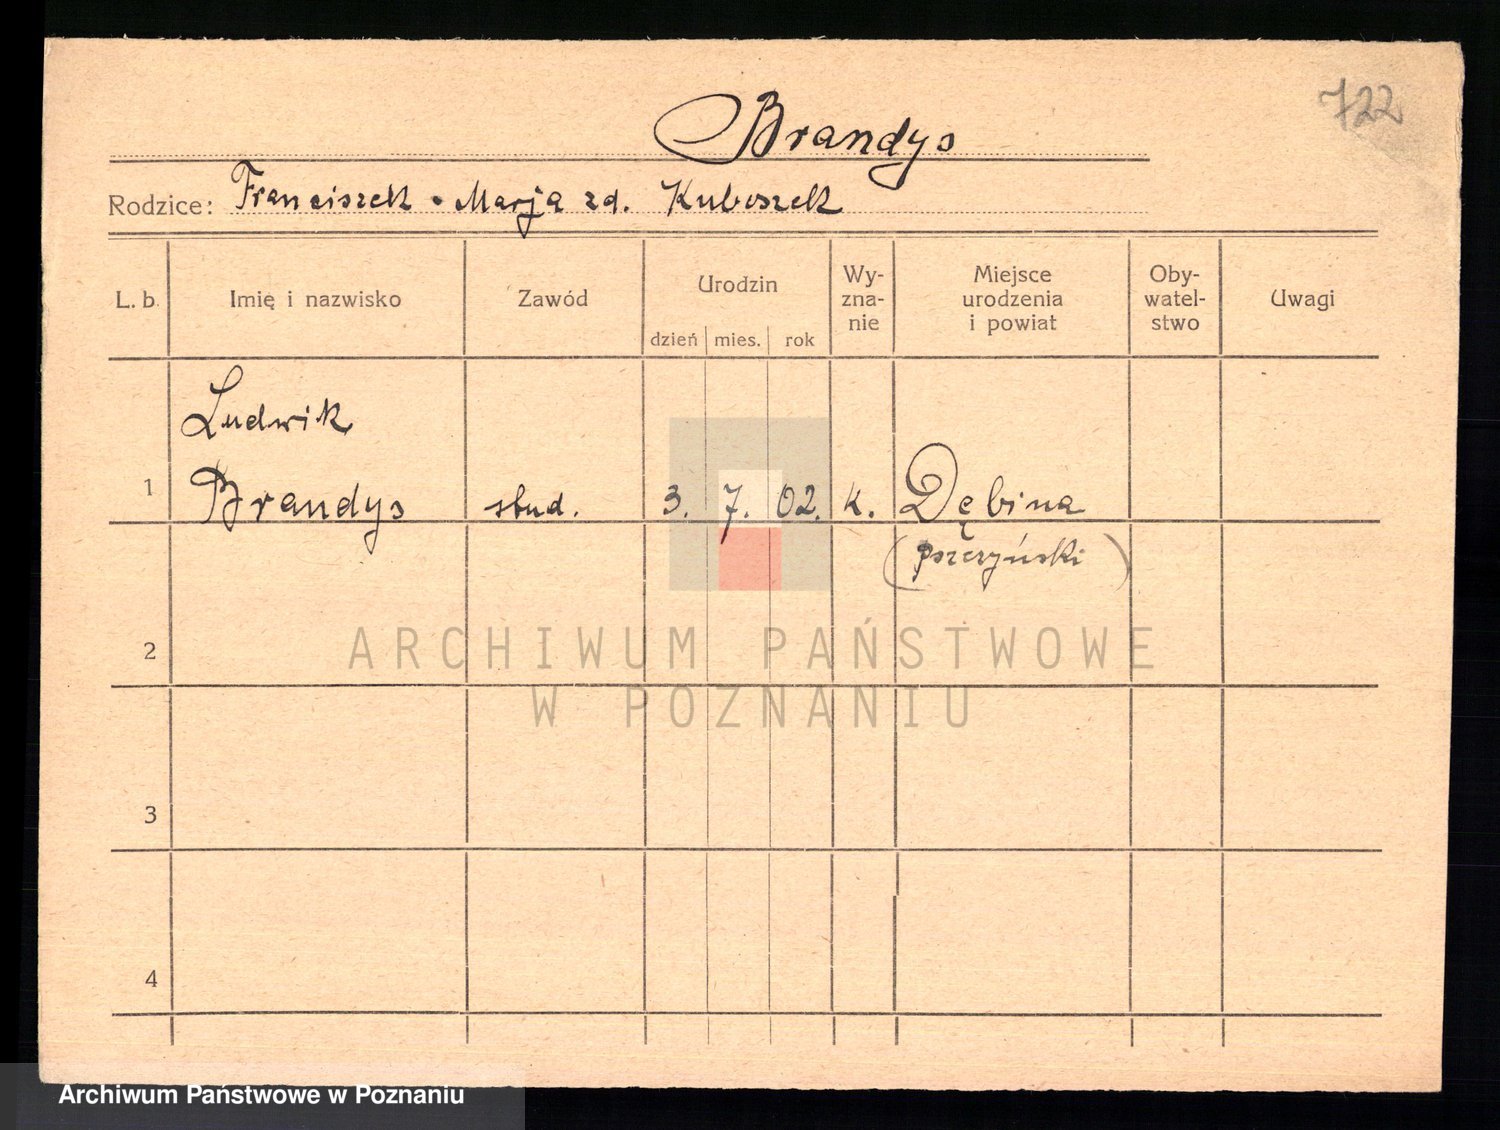 722
Brandys
Rodzice: Franciszek • Marja zd. Kuboszek
L. b. Imię i nazwisko Zawód Urodzin dzień mies. rok Wy-zna-nie Miejsce urodzenia i powiat Oby-watel-stwo Uwagi
Ludwik
1 Brandys stud. 3. 7. 02. k. Dębina
(pszczyński)
2
ARCHIWUM PAŃSTWOWE
W POZNANIU
3
4
Archiwum Państwowe w Poznaniu